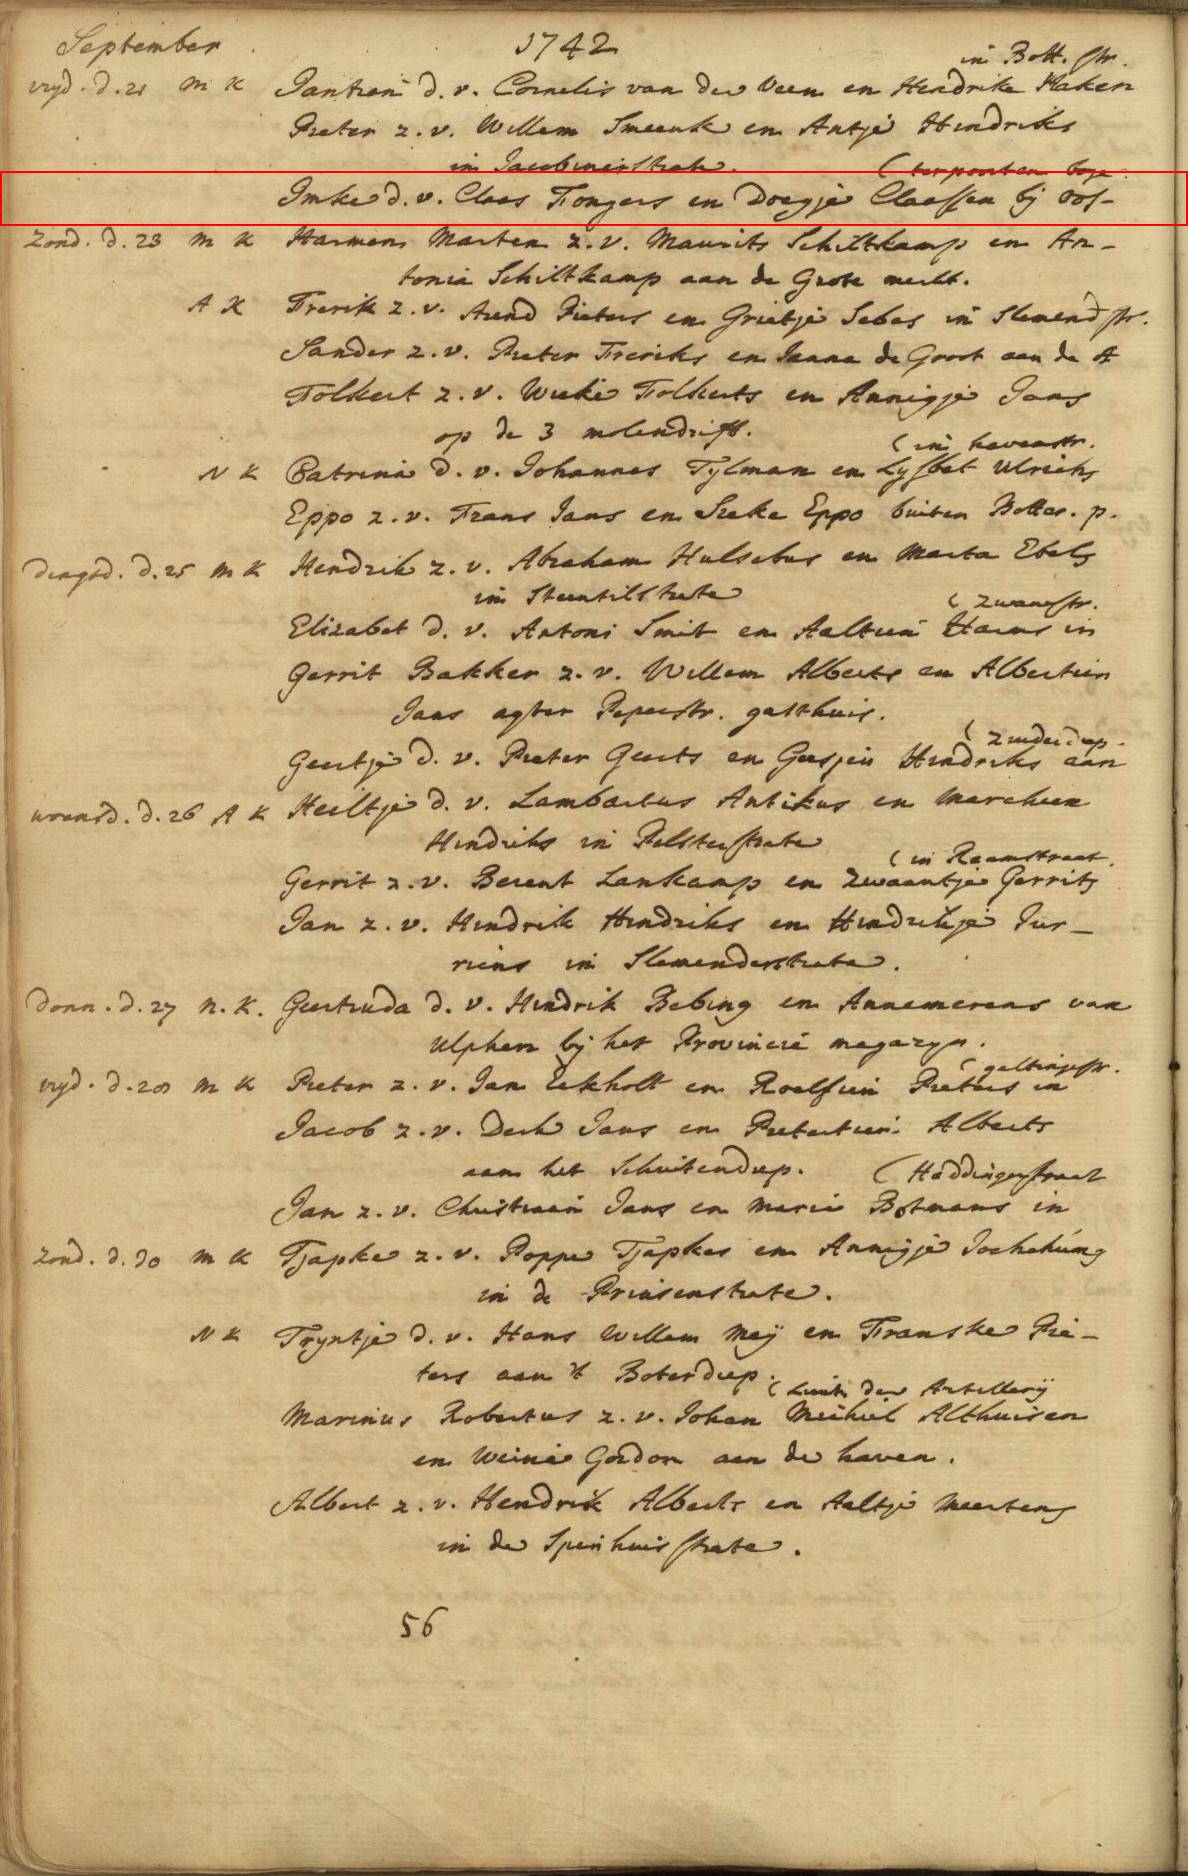 September 1742
in Bott. str.
vryd. d. 21 M K Jantien d. v. Cornelis van der Veen en Hendrike Haken
Pieter z. v. Willem Smeenk en Antje Hindriks
in Jacobinerstrate.
( terpoorten boge.
Imke d. v. Claes Fongers en Doegje Claessen bij oos-
Zond. d. 23 M K Harmen Marten z. v. Maurits Schiltkamp en An-
tonia Schiltkamp aan de Grote merkt.
A K Frerik z. v. Arend Pieters en Grietje Sebes in Slemend str.
Sander z. v. Pieter Freriks en Janna de Groot aan de A
Folkert z. v. Wieke Folkerts en Annigje Jans
op de 3 molendrift.
( in havenstr.
N K Catrina d. v. Johannes Tylman en Lysbet Ulrichs
Eppo z. v. Frans Jans en Sieke Eppo buiten Botter. p.
dingsd. d. 25 M K Hendrik z. v. Abraham Hulsebus en Marta Ebels
in Steentilstrate
( Zwanestr.
Elizabet d. v. Antoni Smit en Aaltien Harms in
Gerrit Bakker z. v. Willem Alberts en Albertien
Jans agter Peperstr. gasthuis.
( zuiderdiep.
Geertje d. v. Pieter Geerts en Geesjen Hindriks aan
woensd. d. 26 A K Heiltje d. v. Lambartus Antikus en Marchien
Hindriks in Pelsterstrate
( in Raamstraat.
Gerrit z. v. Berent Lankamp en Zwaantje Gerrits
Jan z. v. Hindrik Hindriks en Hindrikje Jur-
riens in Slemenderstrate.
Donn. d. 27 N. K. Geertruda d. v. Hindrik Bebing en Annemerens van
Ulphen bij het Provincie magazyn.
( galkinjestr.
vryd. d. 28 M K Pieter z. v. Jan Eekholt en Roelfien Pieters in
Jacob z. v. Derk Jans en Pietertien Alberts
aan het Schuitendiep.
( Haddingestraat
Jan z. v. Christiaan Jans en Maria Botmans in
Zond. d. 30 M K Tjapke z. v. Poppe Tjapkes en Annigje Jochehúms
in de Prinsenstrate.
N K Tryntje d. v. Hans Willem Meÿ en Franske Pie-
ters aan 't Boterdiep.
( Luit. der Artillerij
Marinus Robertus z. v. Johan Michiel Althuisen
en Weinia Gordon aan de haven.
Albert z. v. Hendrik Alberts en Aaltje Meertens
in de Spinhuis strate.
56